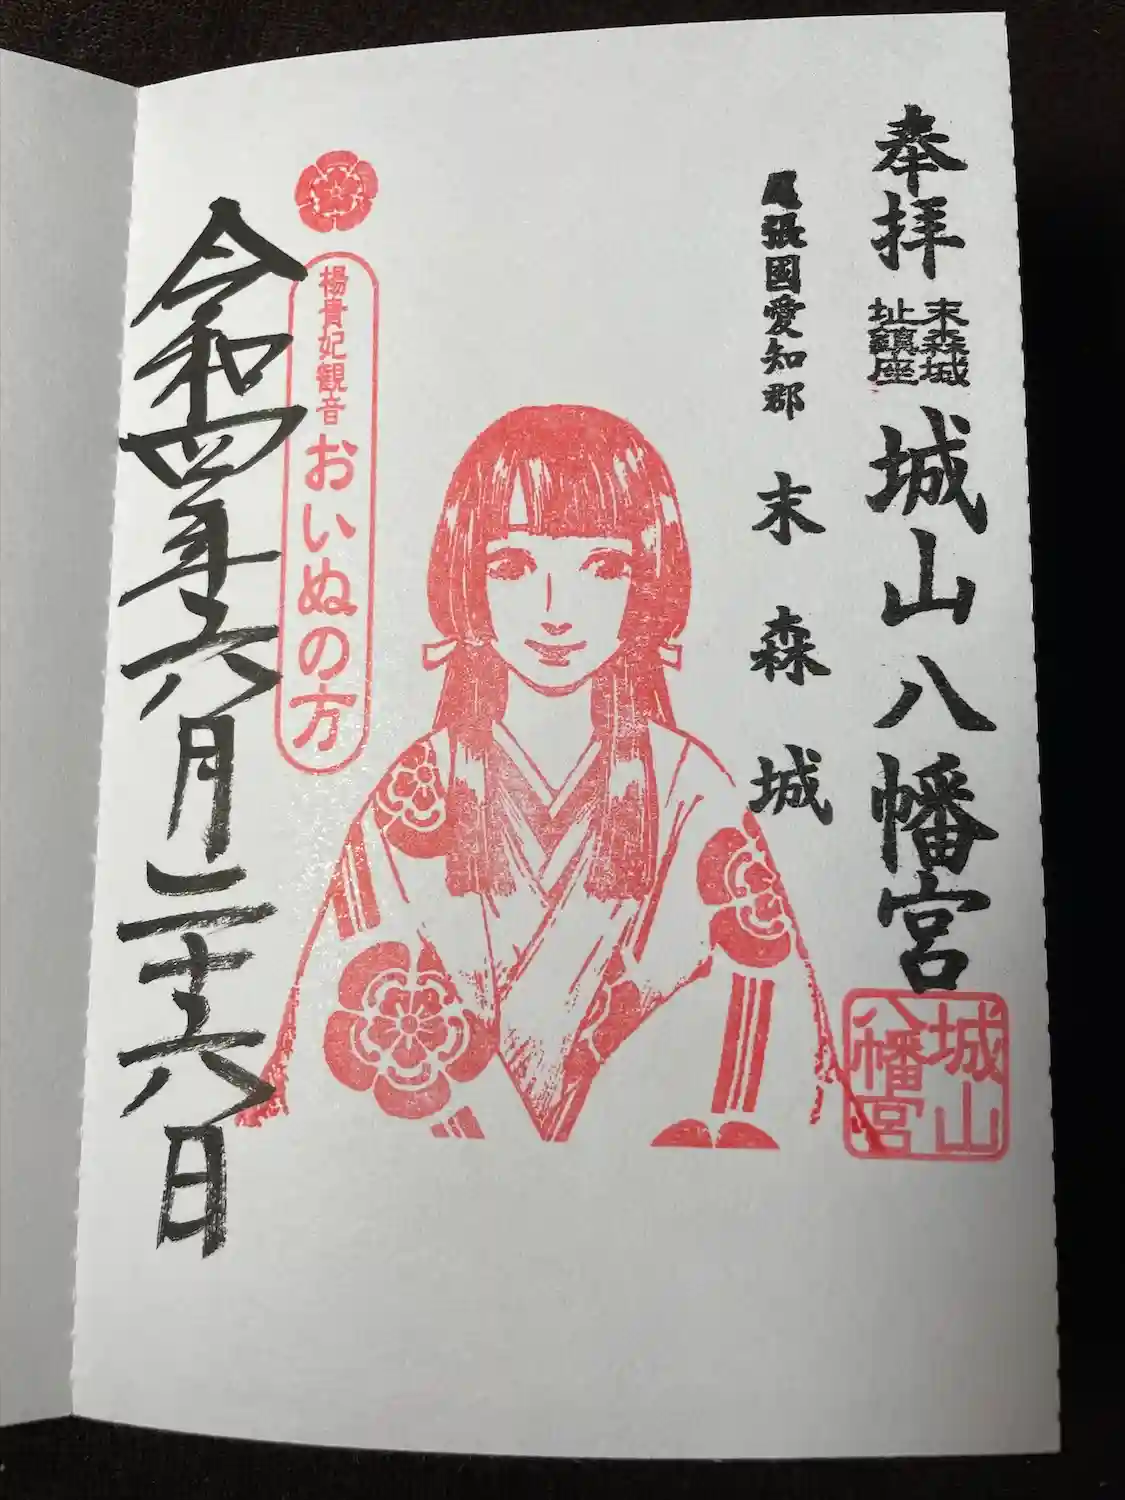 奉拝
末森城
址鎮座
城山八幡宮
城山
八幡宮
尾張國愛知郡
末森城
楊貴妃観音
おいぬの方
令和四年六月二十六日